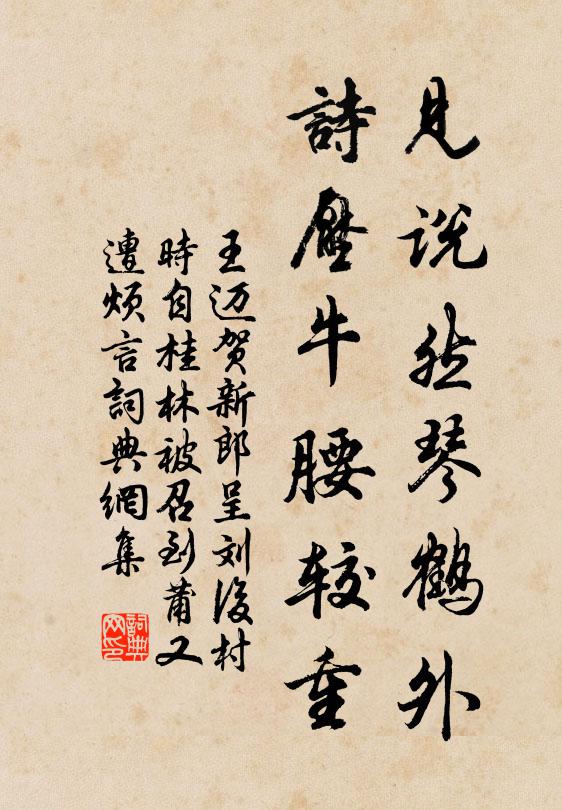 见说怹琴鹤外
詩壓牛腰较重
王迈贺新郎呈刘後村
時自桂林被召到莆又
遭烦言詞典網集
詞典
网印